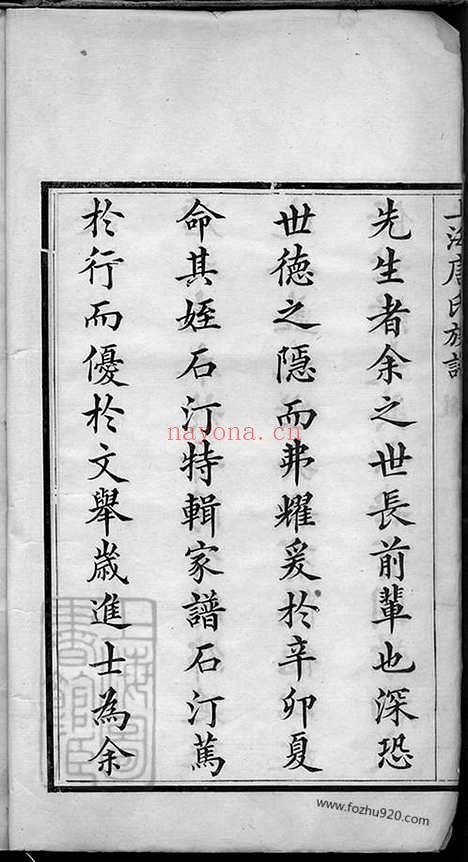 上海唐氏族譜
先生者余之世長前輩也深恐
世德之隱而弗耀爰於辛卯夏
命其姪石汀特輯家譜石汀篤
於行而優於文舉歲進士為余
nayona.cn
www.fozhu920.com